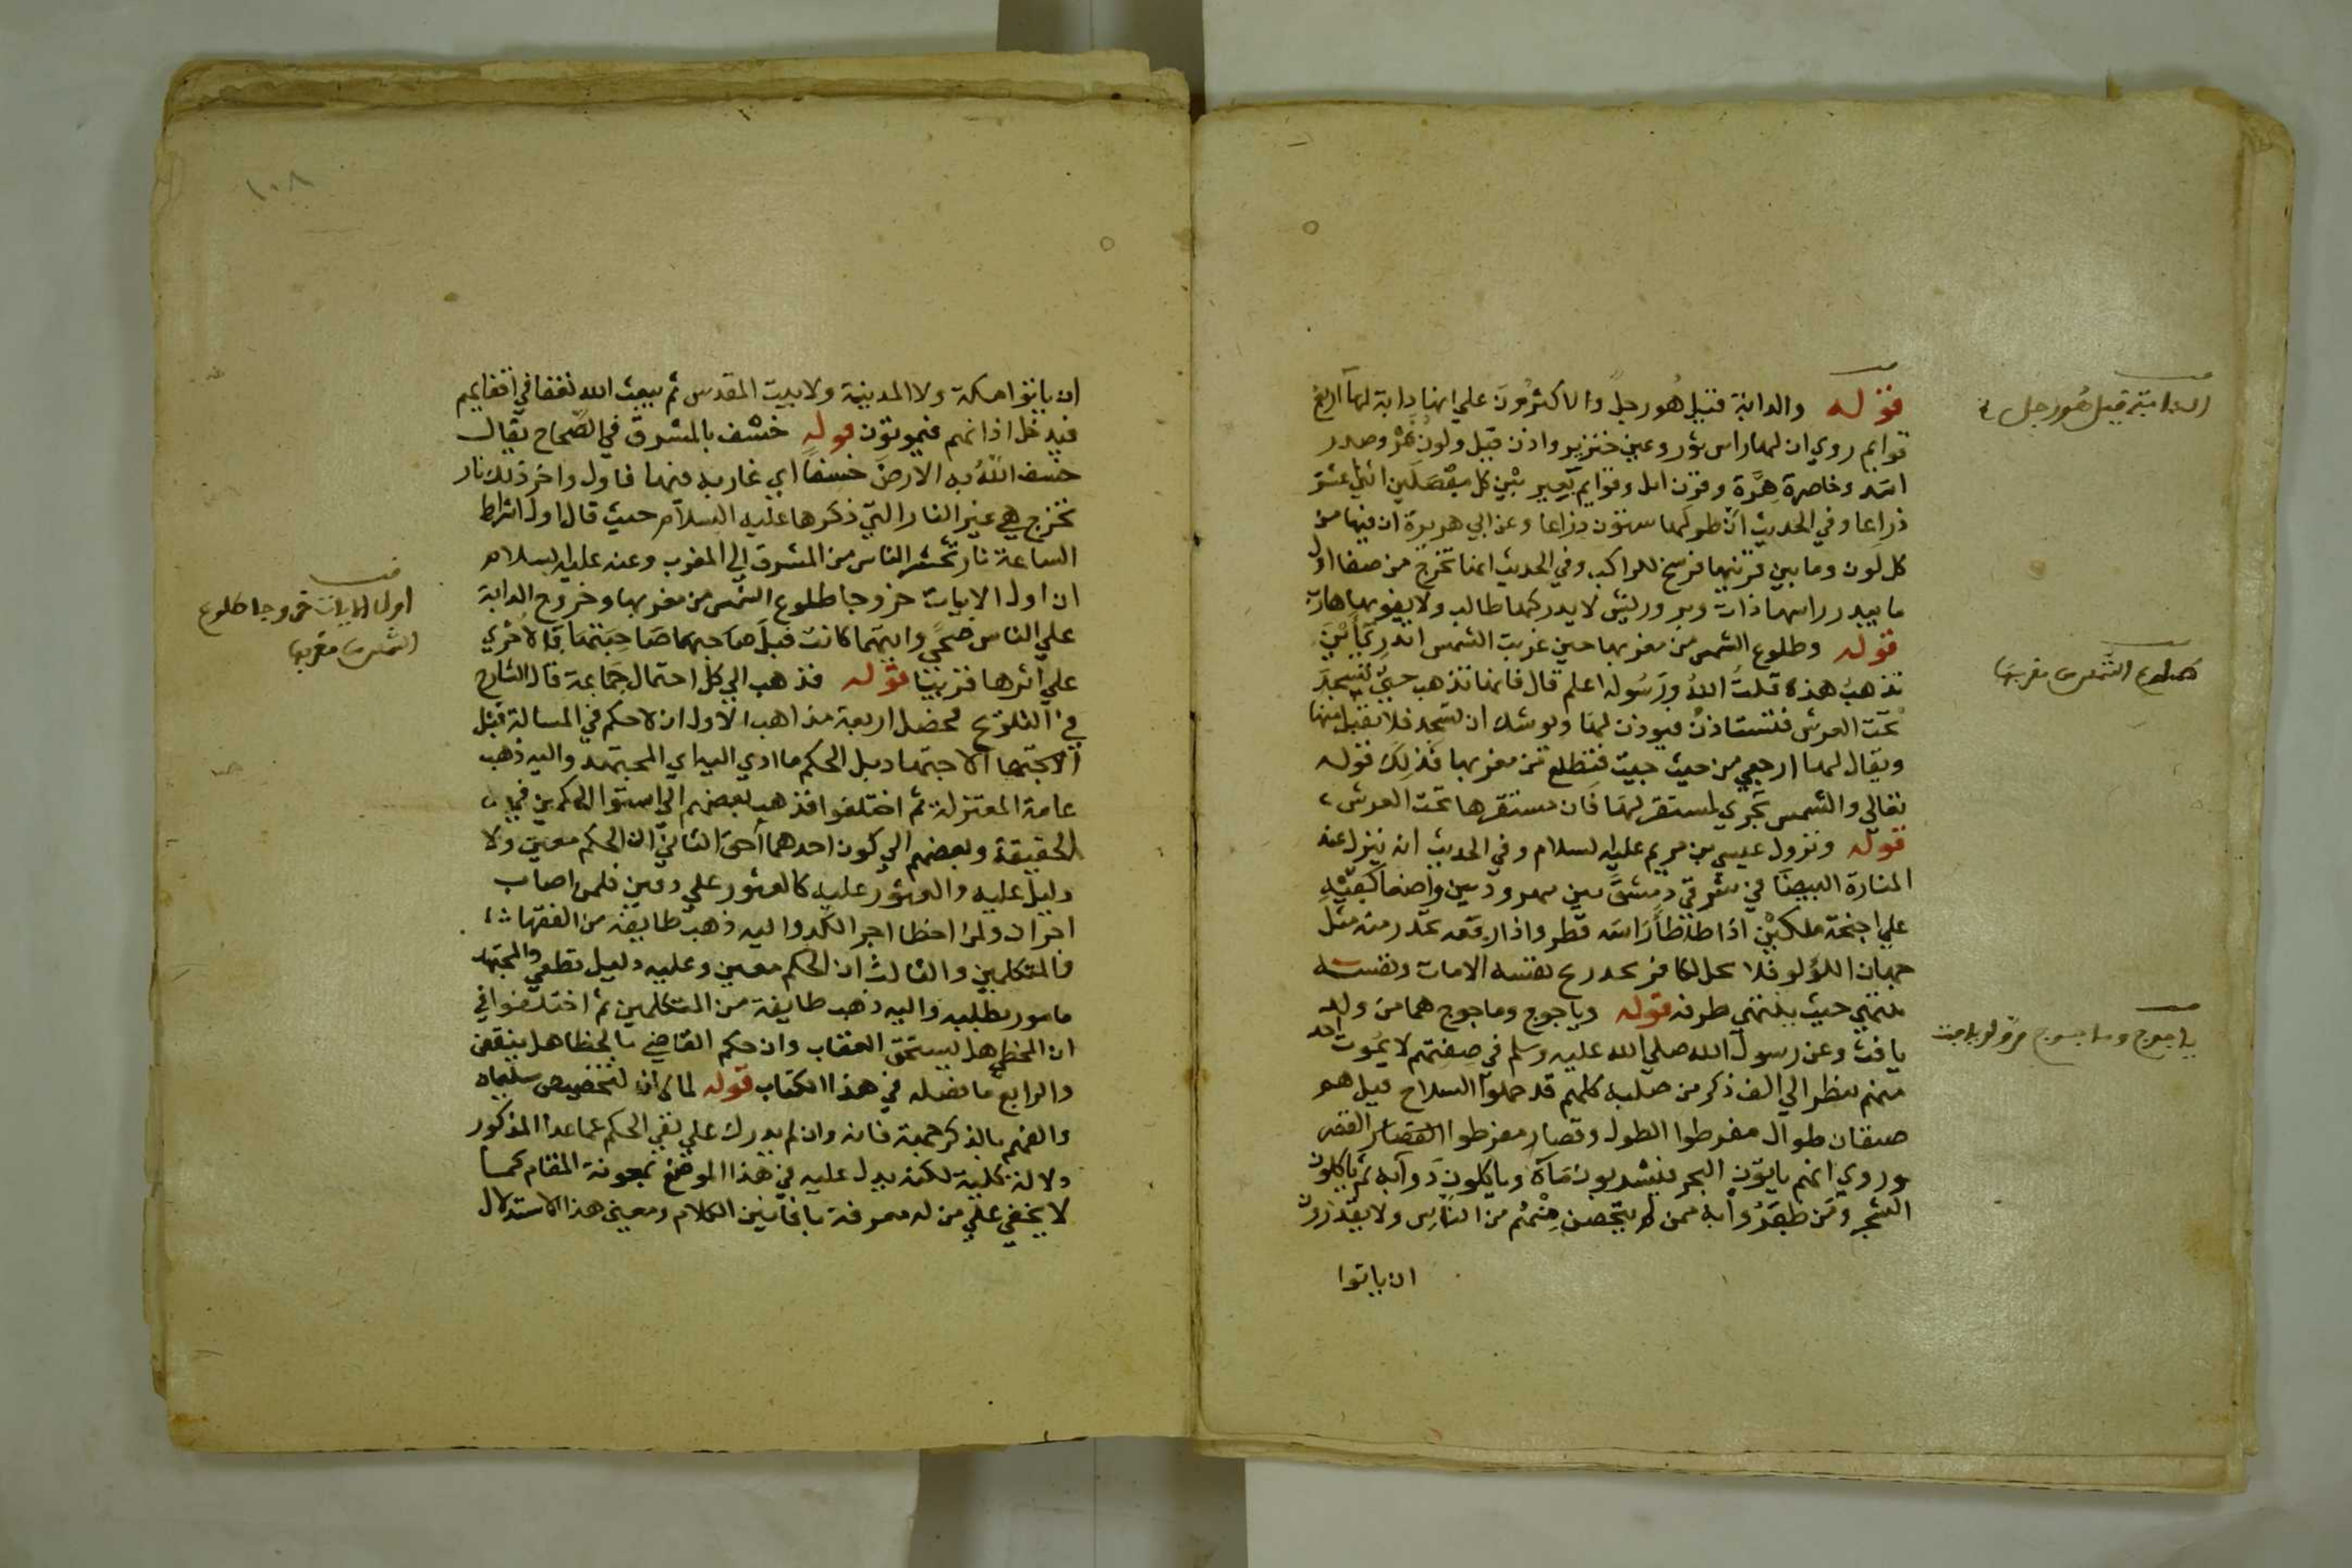 قوله والدابة قيل هو رجل والاكثرون علي انها دابة لها اربع
قوايم روي ان لها راس ثور وعين خنزير واذن فيل ولون نمر وصدر
اسد وخاصرة هرة وقرن ايل وقوايم بعير بين كل مفصلين اثني عشر
ذراعا وفي الحديث ان طولها ستون ذراعا وعن ابي هريرة ان فيها من
كل لون وما بين قرنيها فرسخ للراكب وفي الحديث انها تخرج من صفا اول
ما يبدر راسها ذات وبر وريش لا يدركها طالب ولا يفوتها هارب
قوله وطلوع الشمس من مغربها حين غربت الشمس اتدري اين
تذهب هذه قلت الله ورسوله اعلم قال فانها تذهب حتي تسجد
تحت العرش فتستاذن فيوذن لها ويوشك ان تسجد فلا تقبل منها
ويقال لها ارجعي من حيث جيت فتطلع من مغربها فذلك قوله
تعالي والشمس تجري لمستقر لها فان مستقرها تحت العرش
قوله ونزول عيسي بن مريم عليه السلام وفي الحديث انه ينزل عند
المنارة البيضا في شرقي دمشق بين مهرودتين واضعا كفيه
علي اجنحة ملكين اذا طاطا راسه قطر واذا رفعه تحدر منه مثل
جمان اللؤلو فلا يحل لكافر يجد ريح نفسه الا مات ونفسه
ينتهي حيث ينتهي طرفه قوله وياجوج وماجوج هما من ولد
يافث وعن رسول الله صلي الله عليه وسلم في صفتهم لا يموت احد
منهم ينظر الي الف ذكر من صلبه كلهم قد حملوا السلاح قيل هم
صنفان طوال مفرطوا الطول وقصار مفرطوا القصر
وروي انهم ياتون البحر فيشربون مآه وياكلون دوآبه ثم ياكلون
الشجر ومن ظفروا به ممن لم يتحصن منهم من الناس ولا يقدرون
ان ياتوا
الدابة قيل هو رجل
طلوع الشمس من مغربها
ياجوج وماجوج من اولاد يافث
١٠٨
ان ياتوا مكة ولا المدينة ولا بيت المقدس ثم يبعث الله نغفا في اقفايهم
فيدخل اذانهم فيموتون قوله خسف بالمشرق في الصحاح يقال
خسف الله به الارض خسفا اي غار به فيها قاول واخر ذلك نار
تخرج هي غير النار التي ذكرها عليه السلام حيث قال اول اشراط
الساعة نار تحشر الناس من المشرق الي المغرب وعنه عليه السلام
ان اول الايات خروجا طلوع الشمس من مغربها وخروج الدابة
علي الناس ضحي وايتهما كانت قبل صاحبتها فالاخري
علي اثرها قريبا قوله فذهب الي كل احتمال جماعة قال الشارح
في التلويح محصل اربعة مذاهب الاول ان لا حكم في المسالة قبل
الاجتهاد بل الحكم ما ادي اليه راي المجتهد واليه ذهب
عامة المعتزلة ثم اختلفوا فذهب بعضهم الي استوا الحكمين في
الحقيقة وبعضهم الي كون احدهما احق الثاني ان الحكم معين ولا
دليل عليه والعثور عليه كالعثور علي دفين فلمن اصاب
اجران ولمن اخطا اجر الكد واليه ذهب طايفة من الفقها
والمتكلمين والثالث ان الحكم معين وعليه دليل قطعي والمجتهد
مامور بطلبه واليه ذهب طايفة من المتكلمين ثم اختلفوا في
ان المخطي هل يستحق العقاب وان حكم القاضي بالخطا هل ينقض
والرابع ما فصله في هذا الكتاب قوله لما كان لتخصيص سليمان
والفهم بالذكر جهة فانه وان لم يدرك علي نفي الحكم عما عدا المذكور
دلالة كلية لكنه يدل عليه في هذا الموضع بمعونة المقام كما
لا يخفي علي من له معرفة بافانين الكلام ومعني هذا الاستدلال
اول الايات خروجا طلوع
الشمس من مغربها